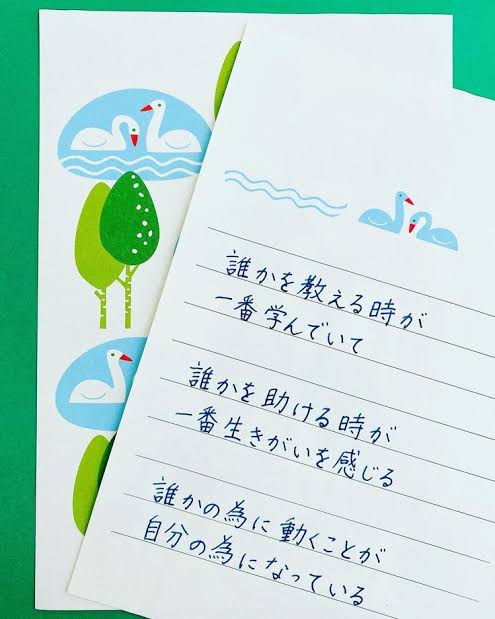 誰かを教える時が
一番学んでいて
誰かを助ける時が
一番生きがいを感じる
誰かの為に動くことが
自分の為になっている